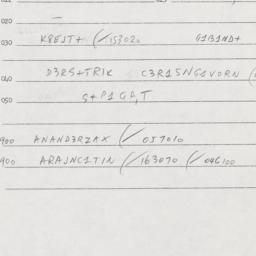 020 —
030 K8EJT+ (/153020 G1B1ND+
040 D3RS+TR1K C3RA5NGAVORN (
050 S+P1GA,T
900 ANAND3RZAX (/057010
900 ARAJNC1T1N (/163070 (/046100